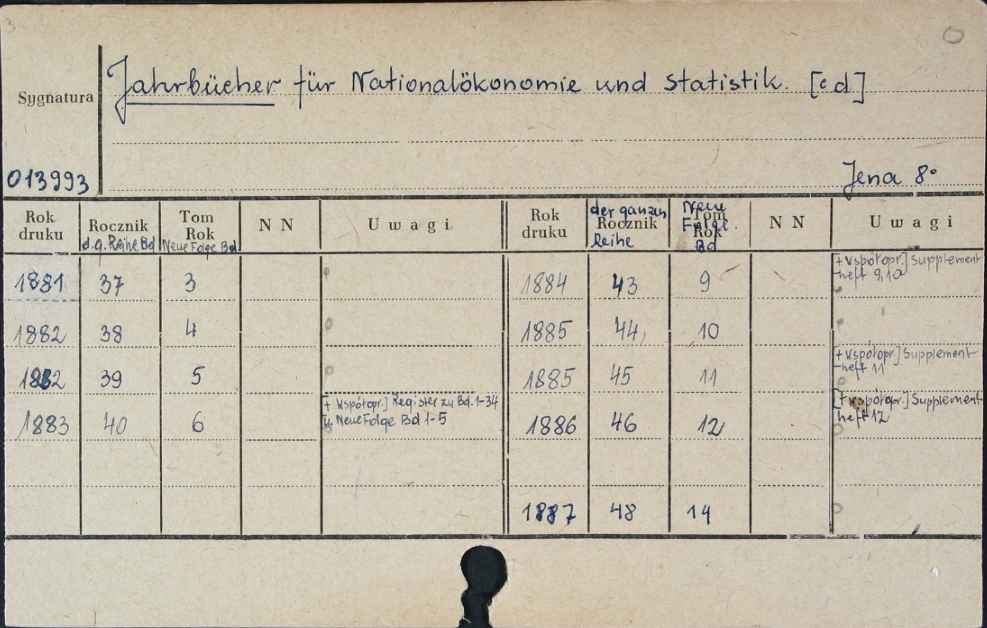 3
Jahrbücher für Nationalökonomie und Statistik. [cd]
Sygnatura
013993
Jena 8°
Rok druku
Rocznik
d.g. Reihe Bd
Tom
Rok
Neue Folge Bd
N N
Uwagi
Rok druku
der ganzen
Rocznik
Reihe
Neue
Tom
Folge.
Rok
Bd
N N
Uwagi
1881 37 3
1882 38 4
1882 39 5
1883 40 6 [+ współopr.] Register zu Bd. 1-34
u. Neue Folge Bd 1-5
1884 43 9 [+ współopr.] Supplement
heft 9,10
1885 44 10
1885 45 11 [+ współopr.] Supplement
heft 11
1886 46 12 [+ współopr.] Supplement
heft 12
1887 48 14